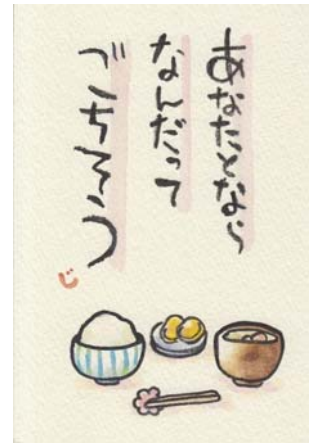 あなたとなら
なんだって
ごちそう
じ